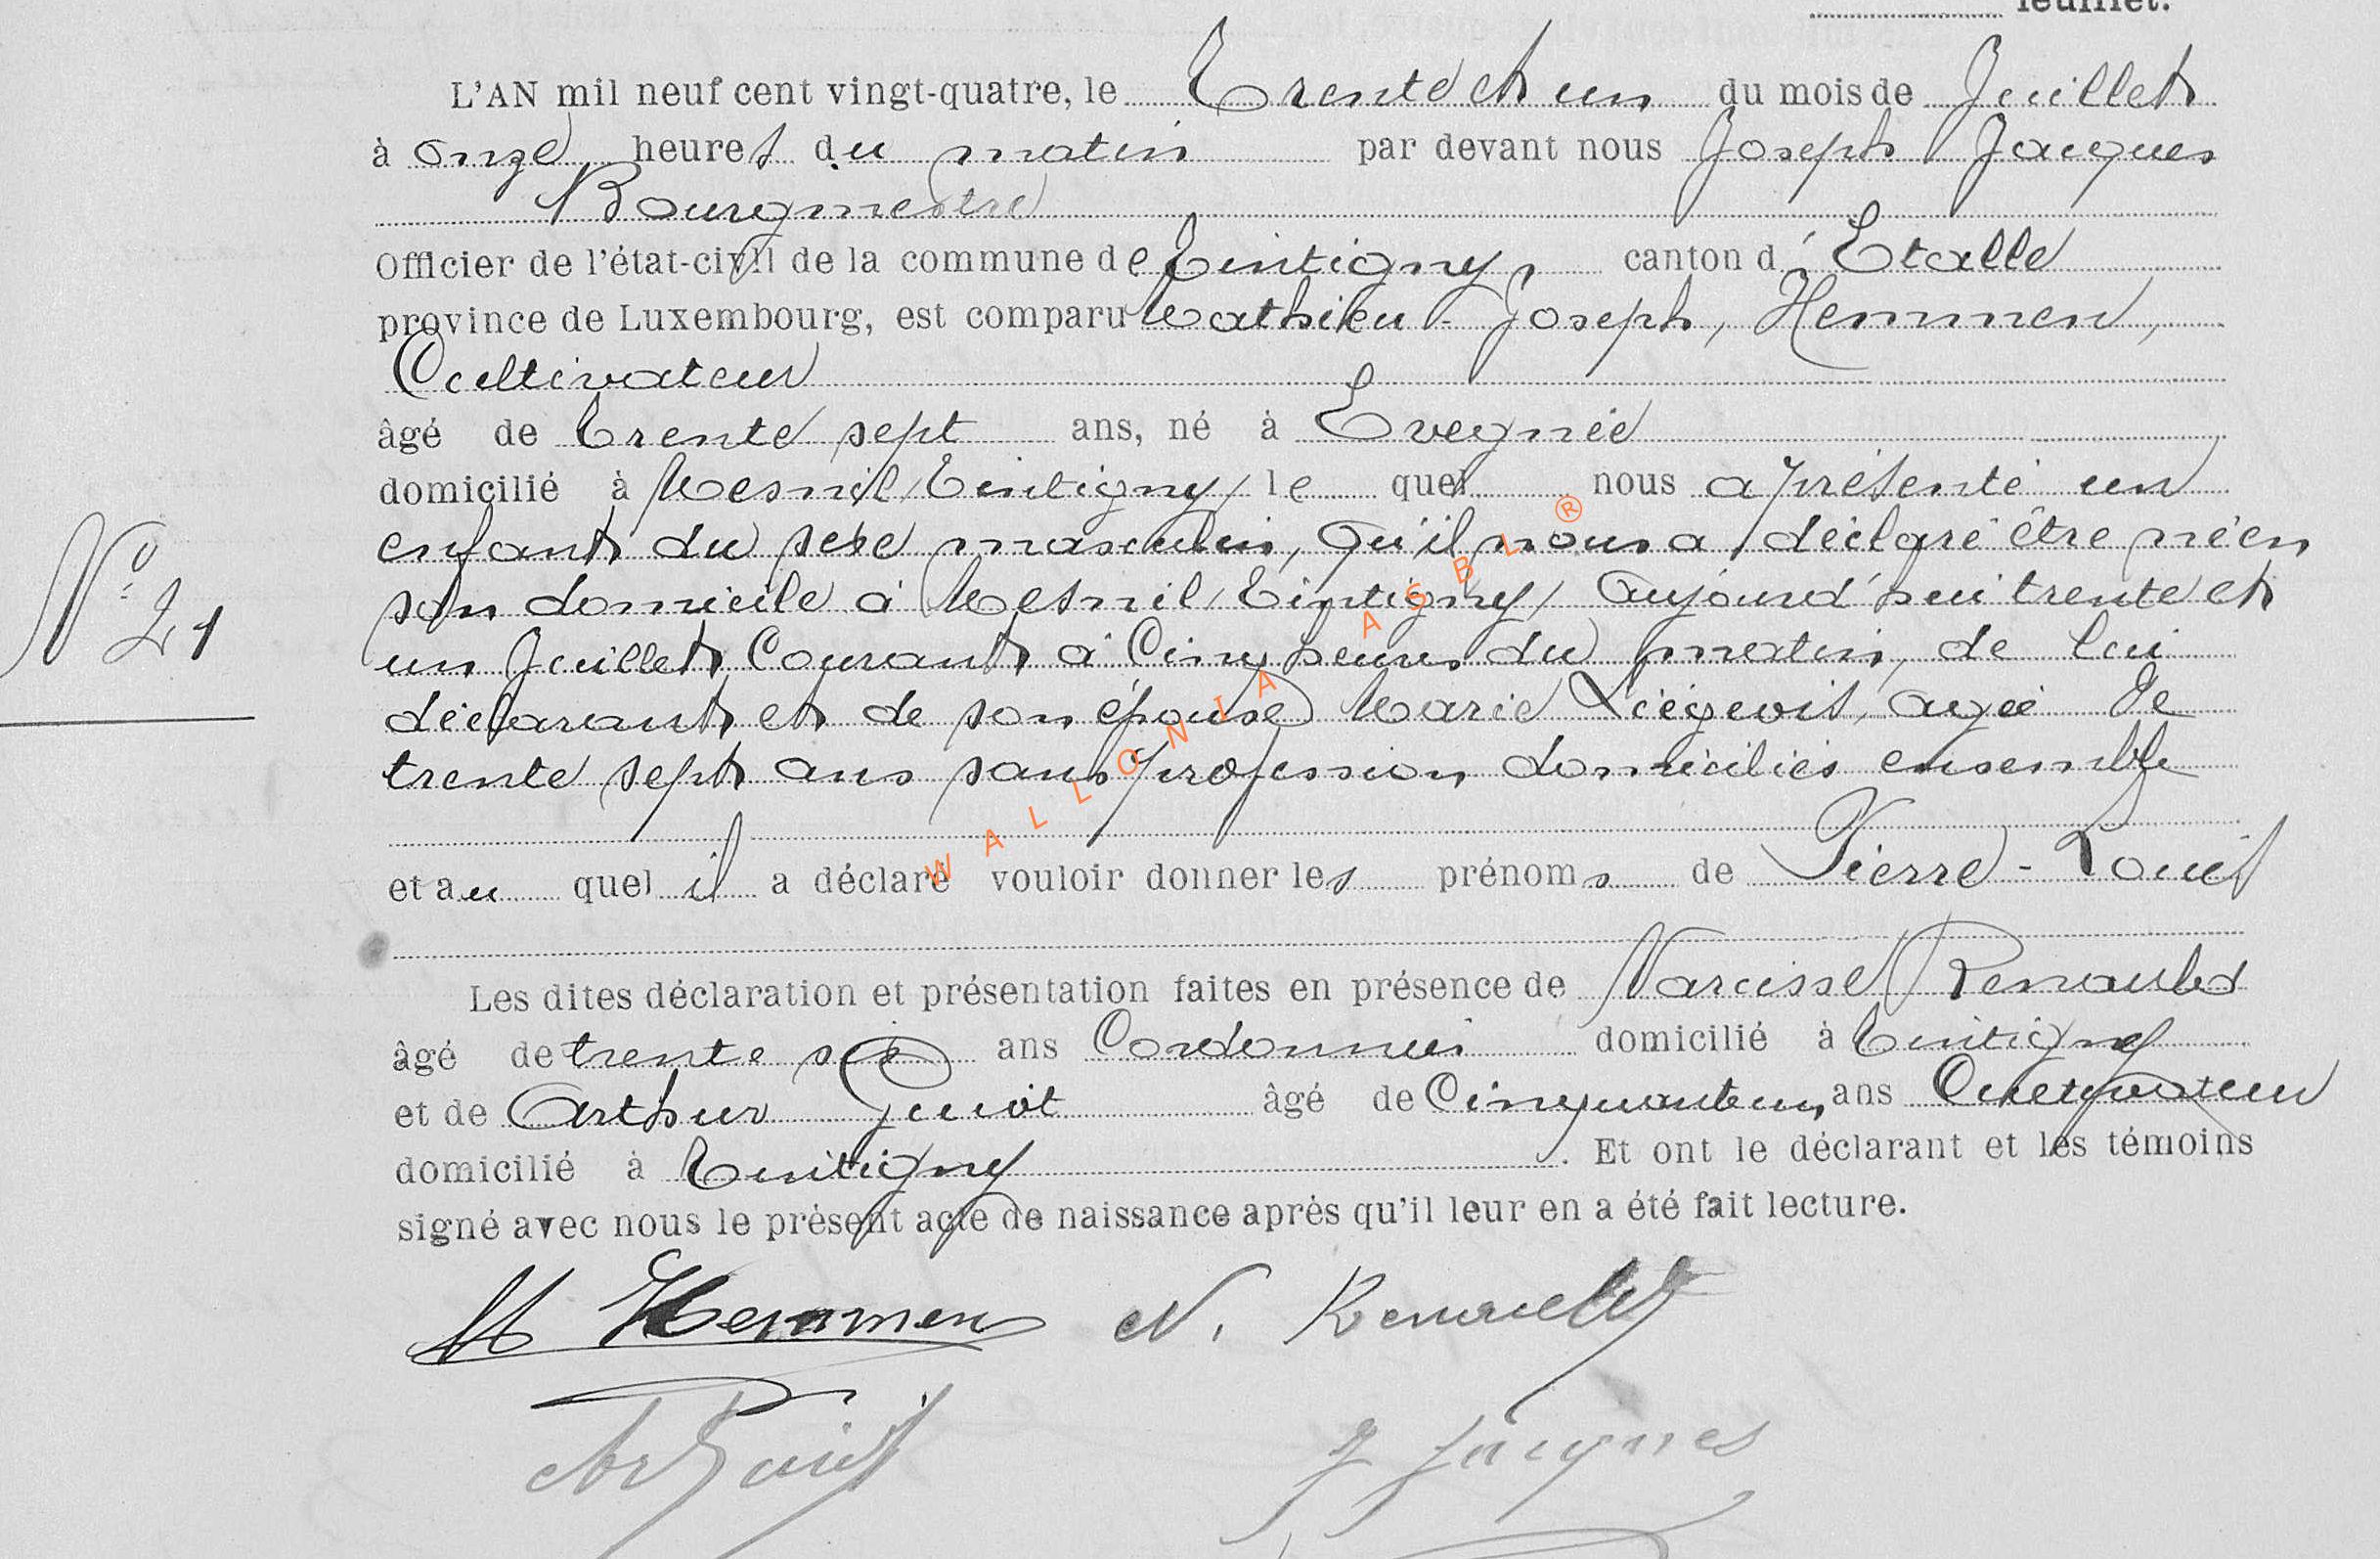 feuillet.
L'AN mil neuf cent vingt-quatre, le Trente et un du mois de Juillet
à onze heures du matin par devant nous Joseph Jacques
Bourgmestre
Officier de l'état-civil de la commune de Tintigny, canton d'Etalle
province de Luxembourg, est comparu Mathieu-Joseph, Hemmen,
Cultivateur
âgé de trente sept ans, né à Evegnée
domicilié à Mesnil, Tintigny, le quel nous a présenté un
enfant du sexe masculin, qu'il nous a déclaré être né en
son domicile à Mesnil, Tintigny, aujourd'hui trente et
N° 21
un Juillet Courant à Cinq heures du matin, de lui
déclarant et de son épouse Marie Liégeois, agée de
trente sept ans sans profession domiciliés ensemble
et au quel il a déclaré vouloir donner les prénoms de Pierre-Louis
Les dites déclaration et présentation faites en présence de Narcisse Renauld
âgé de trente six ans Cordonnier domicilié à Tintigny
et de Arthur âgé de Cinquante un ans Cultivateur
domicilié à Tintigny. Et ont le déclarant et les témoins
signé avec nous le présent acte de naissance après qu'il leur en a été fait lecture.
M Hemmen N. Renauld
J Jacques
WALLONIA ASBL ®